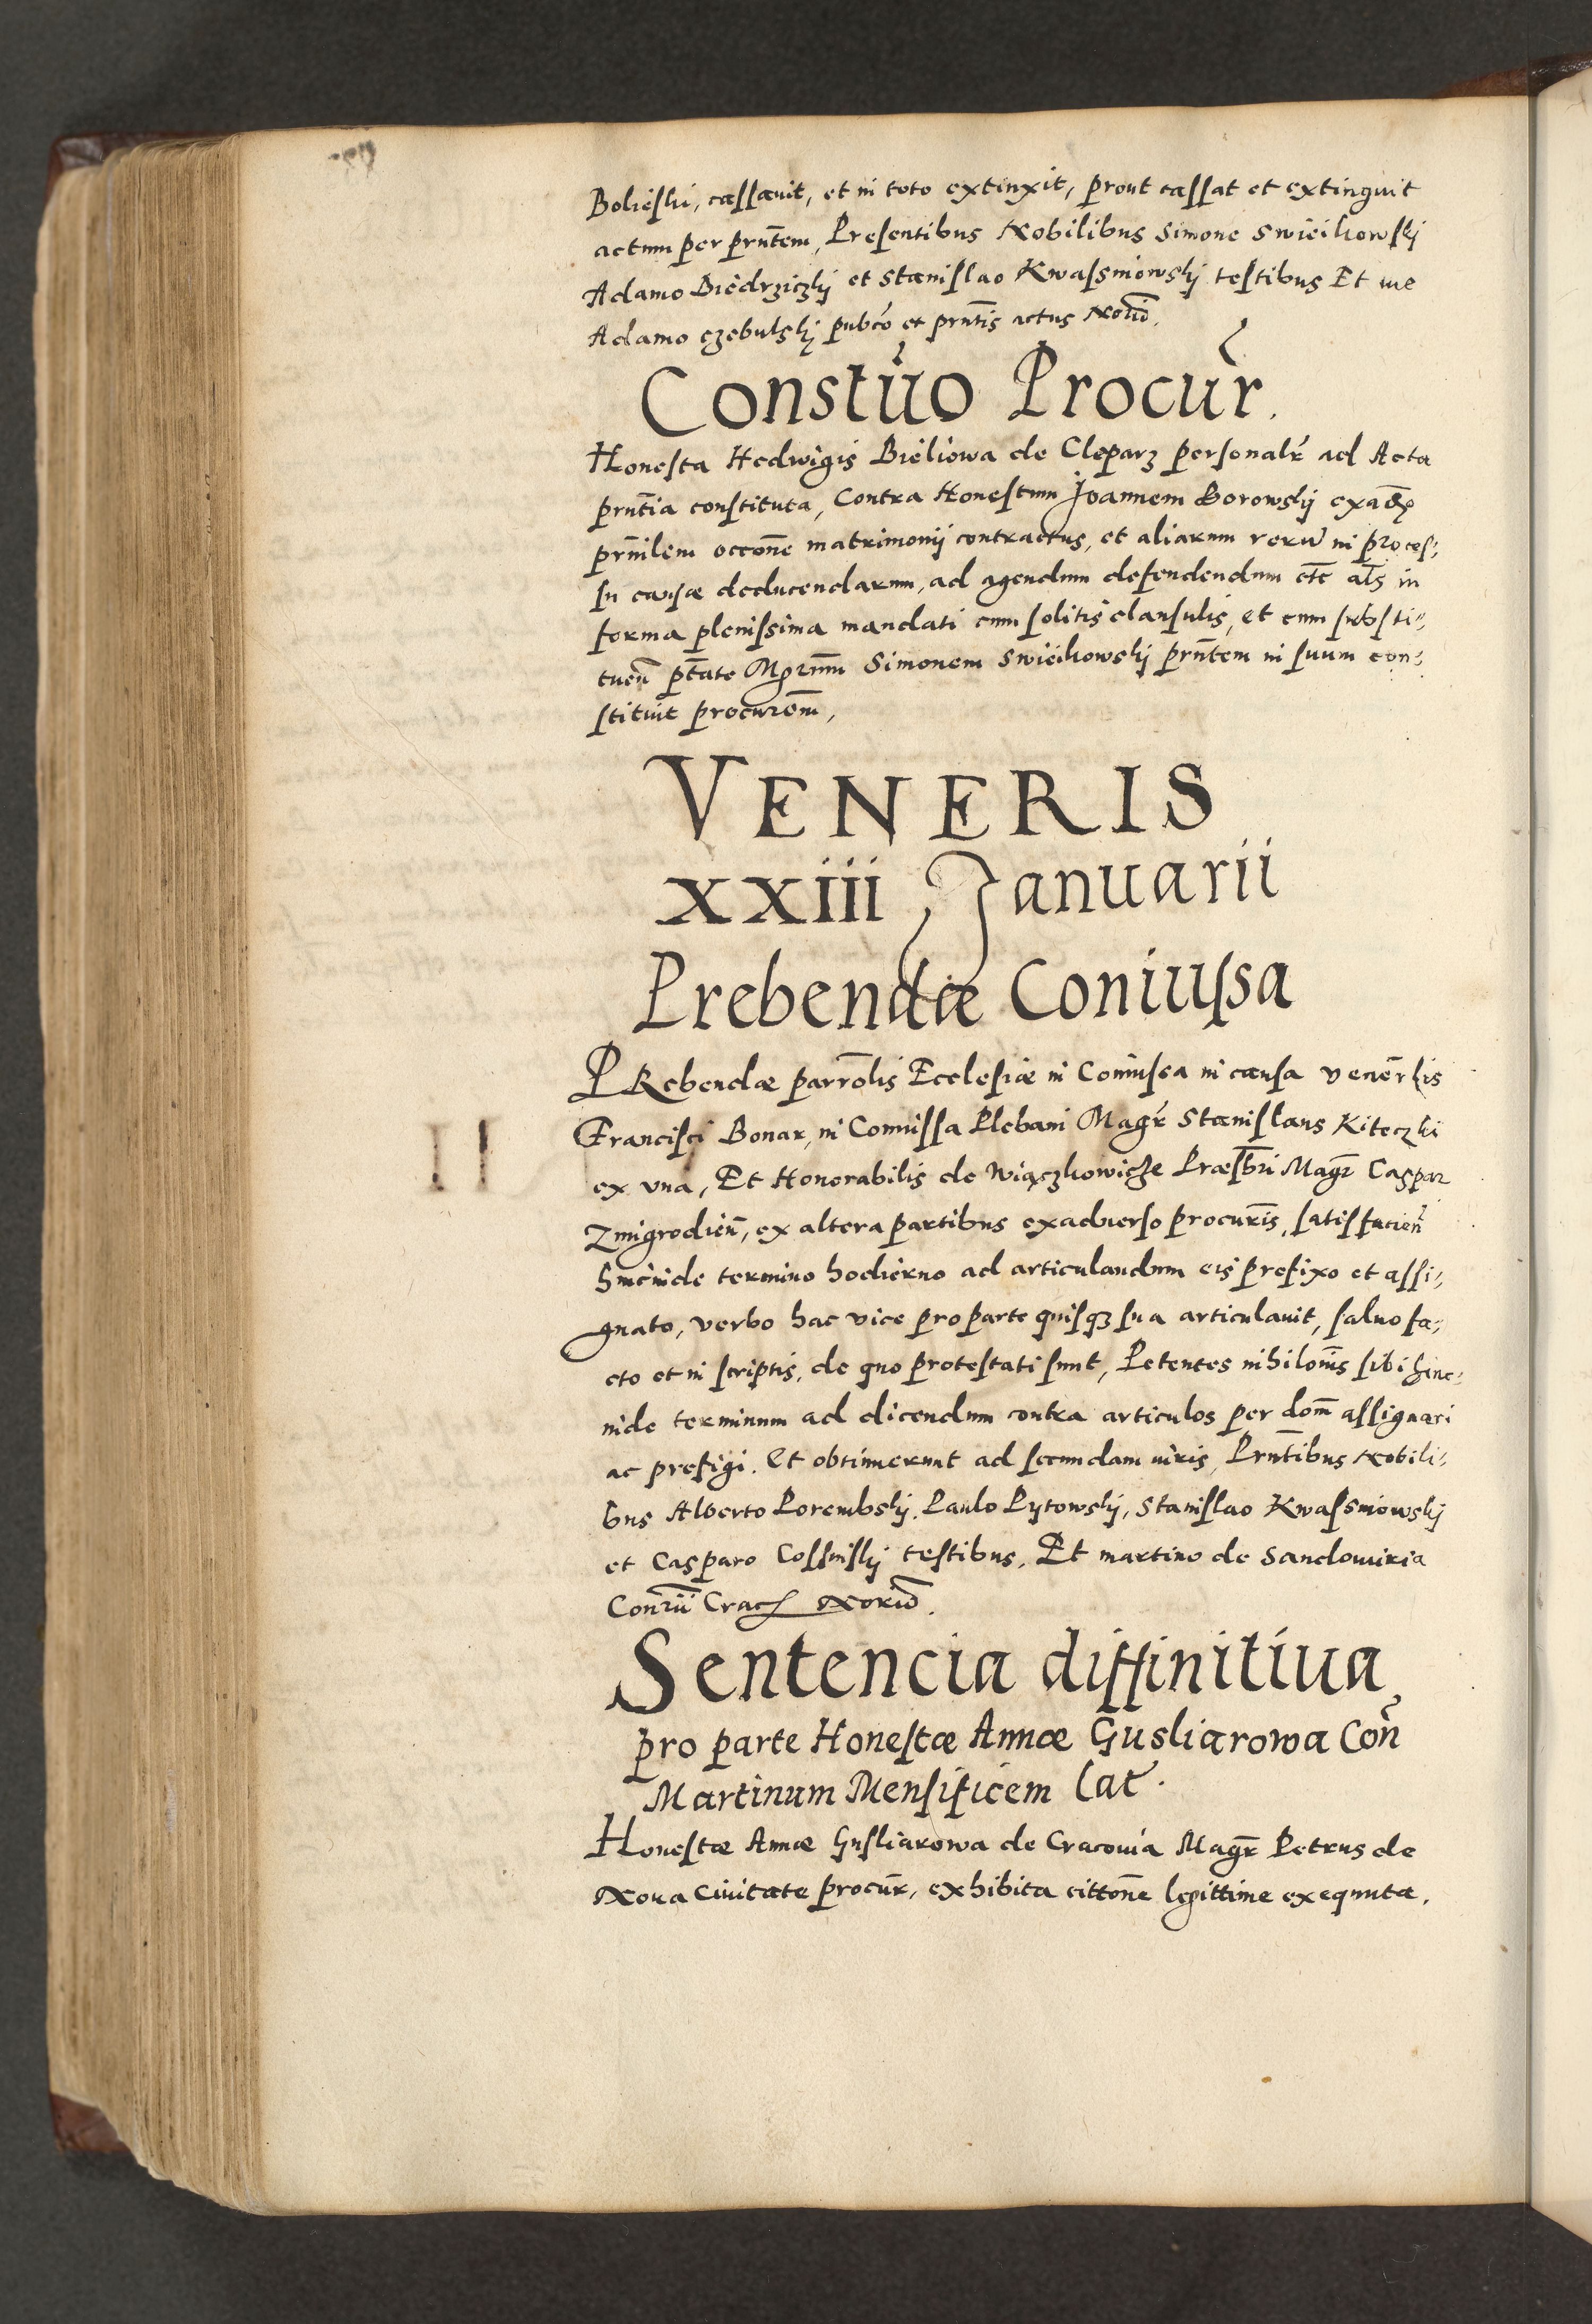 Bolieski, cassauit, et in toto extinxit, prout cassat et extinguit
actum per prñtem, Presentibus Nobilibus Simone Swieikowskj
Adamo Biedrziczkj et Stanislao Kwassniowskj testibus Et me
Adamo Czebulskj pubco et prñtis actus Notrio.
Constuo Procur.
Honesta Hedwigis Bieliowa de Cleparz personalr ad Acta
prñtia constituta, Contra Honestum Joannem Borowskj
occone matrimonij contractus, et aliarum rerum in proces-
su causæ deducendarum, ad agendum defendendum etc als in
forma plenissima mandati cum solitis clausulis, et cum substi-
tuen ptate Simonem Swieikowskj prñtem in suum con-
stituit procurem,
VENERIS
xxiii Januarii
Prebendæ Coniussa
PRebendæ parrolis Ecclesiæ in Coniusca in causa venerlis
Francisci Bonar, in Coniussa Plebani Magr Stanislaus Kiteczki
ex vna, Et Honorabilis de Wiączkowicze Præsbri Magr Caspar
Zmigrodien, ex altera partibus exaduerso procuris, satisfacien
hincinde termino hodierno ad articulandum eis prefixo et assi-
gnato, verbo hac vice pro parte quisqz sua articulauit, saluo fa-
cto et in scriptis, de quo protestati sunt, Petentes nihilomis sibi hinc-
inde terminum ad dicendum contra articulos per dom assignari
ac prefigi. Et obtinuerunt ad secundam iuris, Prñtibus Nobili-
bus Alberto Porembskj, Paulo Pytowskj, Stanislao Kwassniowskj
et Casparo Cossinskj testibus, Et martino de Sandomiria
Conrii Crac Norio.
Sentencia diffinitiua
pro parte Honestæ Annæ Gusliarowa Con
Martinum Mensificem lat.
Honestæ Annæ Gusliarowa de Cracouia Magr Petrus de
Noua Ciuitate procur, exhibita cittone legittime exequuta,